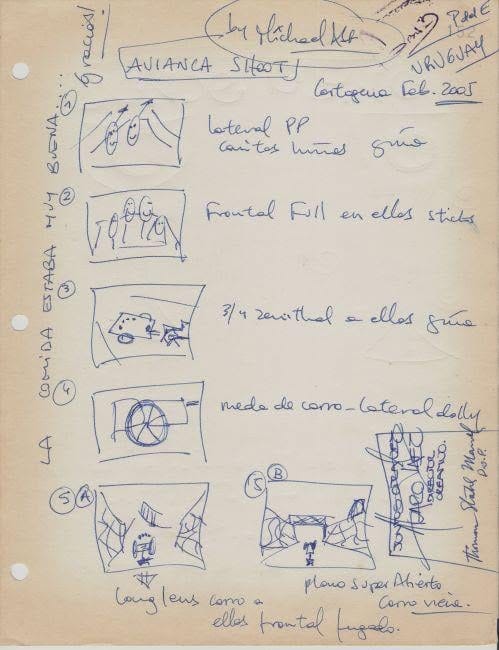 by Michael Abt
P del E
URUGUAY
AVIANCA SHOOT
Cartagena Feb. 2005
LA COMIDA ESTABA MUY BUENA..... gracias!
1
lateral PP
caritas niños grúa
2
Frontal Full en ellos sticks
3
3/4 zenithal a ellos grúa
4
rueda de carro - lateral dolly
5 A
long lens carro a
ellos frontal fugado.
5 B
plano super Abierto
Carro viene.
DIRECTOR
CREATIVO.
D.O.P.